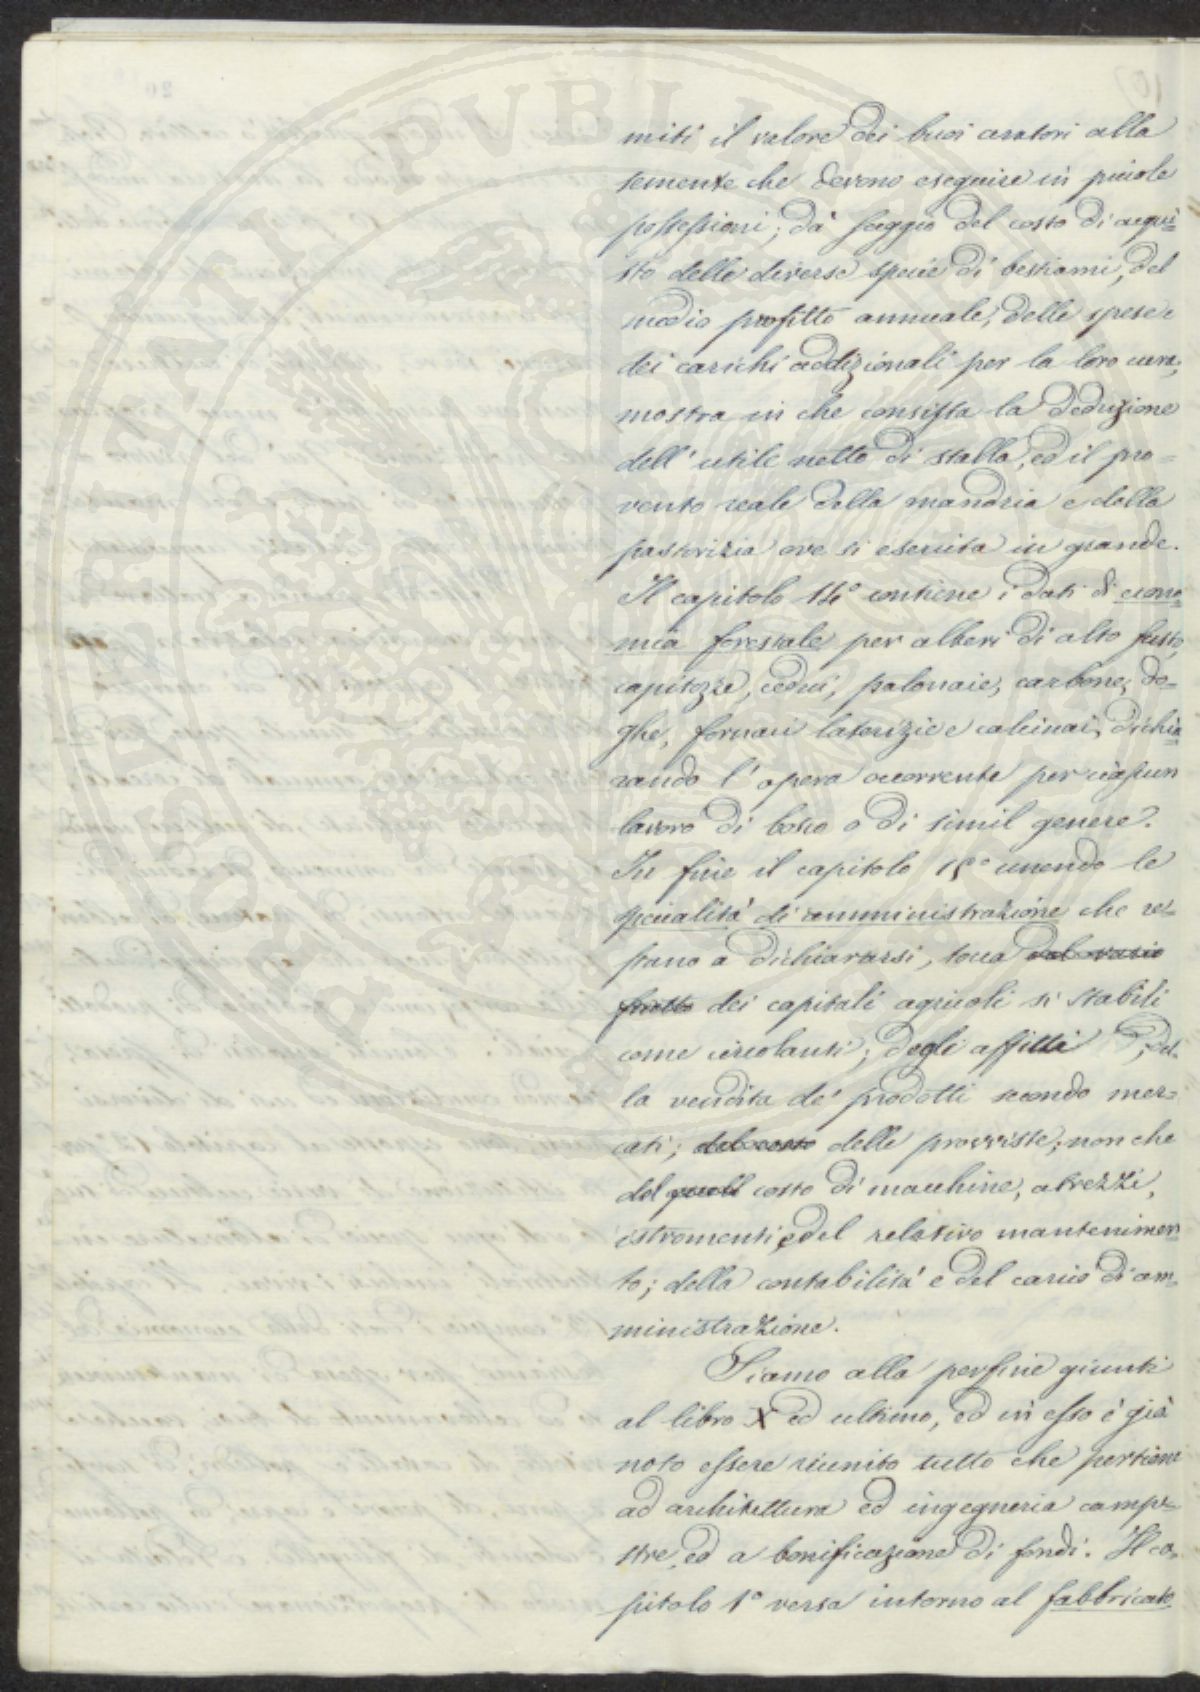 miti il valore dei buoi aratori alla
semente che devono eseguire in piciole
possessioni; dà saggio del costo di acqui=
sto delle diverse specie di bestiami, del
medio profitto annuale, delle spese e
dei carichi addizionali per la loro cura;
mostra in che consista la deduzione
dell' utile netto di stalla, ed il pro=
vento reale della mandria e della
pastorizia ove si esercita in grande.
Il capitolo 14° contiene i dati di econo=
mia forestale per alberi di alto fusto,
capitozze, cedui, palonaie, carbone, do=
ghe, fornaci laterizie e calcinai, dichia=
rando l' opera occorrente per ciascun
lavoro di bosco o di simil genere.
In fine il capitolo 15° unendo le
specialità di amministrazione che re=
stano a dichiararsi, tocca del vario
frutto dei capitali agricoli sì stabili
come circolanti; degli affitti; del=
la vendita de' prodotti secondo mer=
cati; del costo delle provviste; non che
del costo di macchine, atrezzi,
istromenti e del relativo mantenimen=
to; della contabilità e del carico di am=
ministrazione.
Siamo alla perfine giunti
al libro X ed ultimo, ed in esso è già
noto essere riunito tutto che pertiene
ad architettura ed ingegneria campe=
stre, ed a bonificazione di fondi. Il ca=
pitolo 1° versa intorno al fabbricato